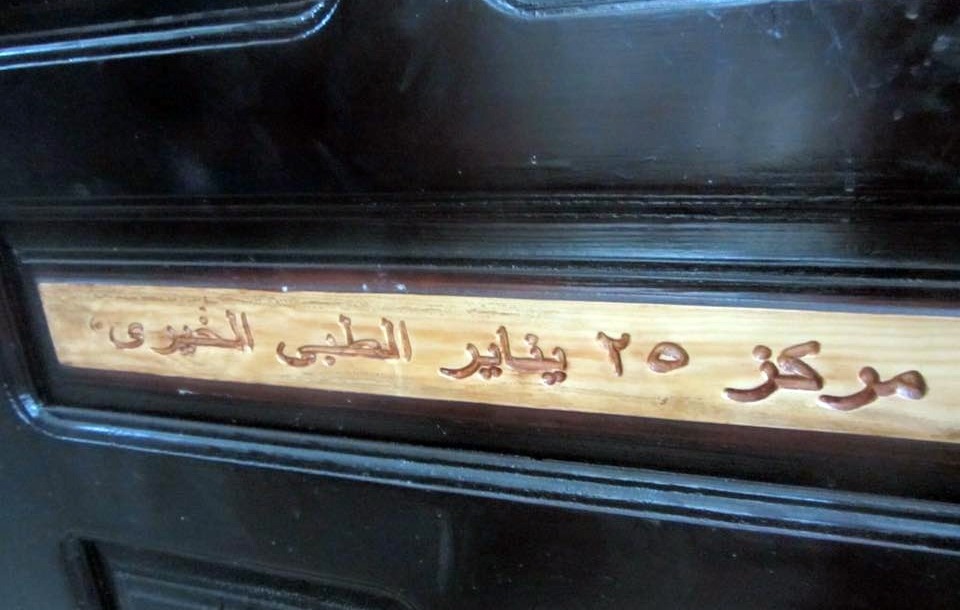 مركز ٢٥ يناير الطبى الخيرى